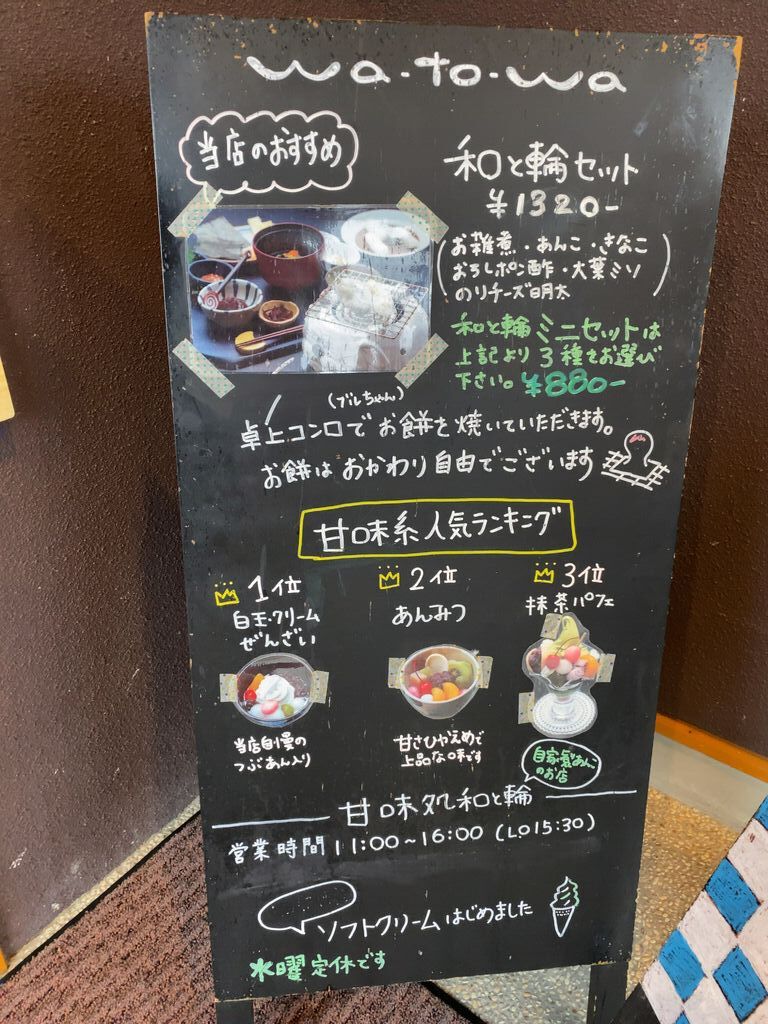 wa・to・wa
当店のおすすめ
和と輪セット
¥1320-
(お雑煮・あんこ・きなこ
おろしポン酢・大葉ミソ
のりチーズ明太)
和と輪ミニセットは
上記より3種をお選び
下さい。¥880-
(ブルちゃん)
卓上コンロでお餅を焼いていただきます。
お餅はおかわり自由でございます
甘味系人気ランキング
1位
白玉・クリーム
ぜんざい
当店自慢の
つぶあん入り
2位
あんみつ
甘さひかえめで
上品な味です
3位
抹茶パフェ
自家製あんこ
のお店
甘味処和と輪
営業時間 11:00~16:00 (LO15:30)
ソフトクリームはじめました
水曜定休です